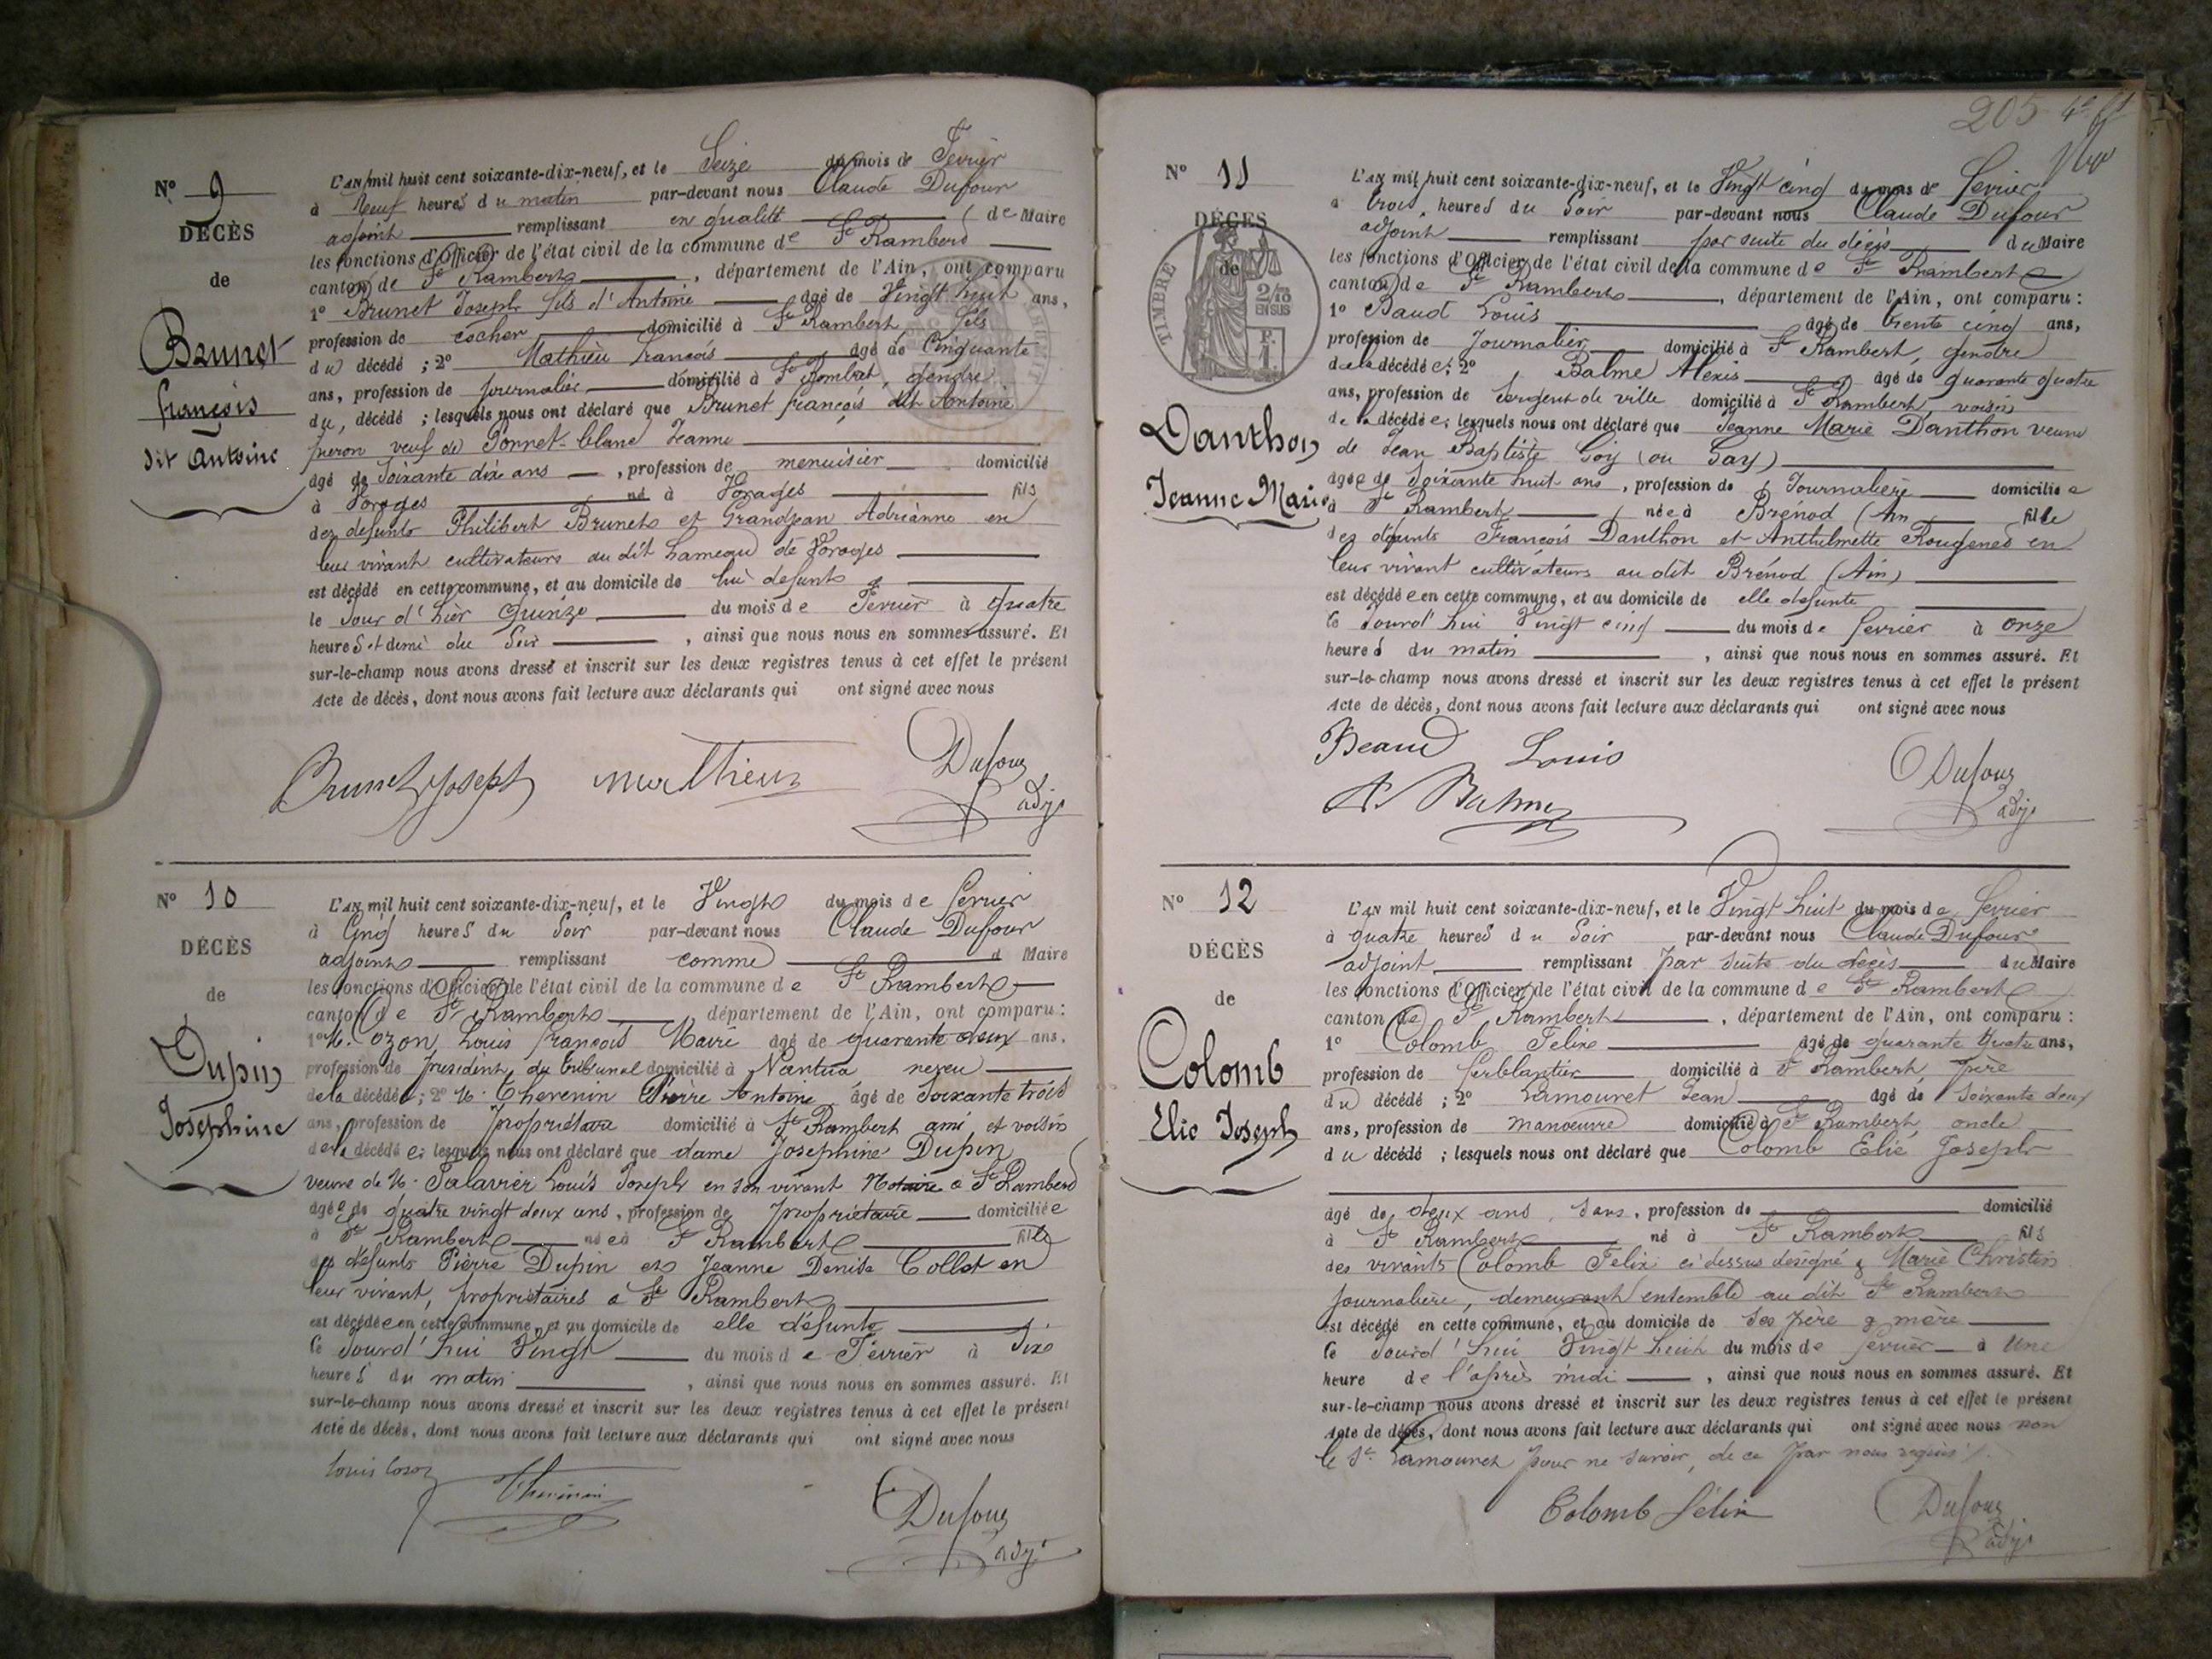 N° 9
DÉCÈS
de
Brunet
françois
dit Antoine
L'AN mil huit cent soixante-dix-neuf, et le Seize du mois de Février
à Neuf heures du matin par-devant nous Claude Dufour
adjoint remplissant en qualité de Maire
les fonctions d'Officier de l'état civil de la commune de St Rambert
canton de St Rambert, département de l'Ain, ont comparu
1° Brunet Joseph fils d'Antoine agé de Vingt huit ans,
profession de cocher domicilié à St Rambert, fils
du décédé ; 2° Mathieu françois agé de Cinquante
ans, profession de journalier domicilié à St Rambert, gendre
du décédé ; lesquels nous ont déclaré que Brunet françois dit Antoine
veuf de Bonnet-blanc Jeanne
agé de Soixante dix ans, profession de menuisier domicilié
à Vorages né à Vorages fils
des defunts Philibert Brunet et Grandjean Adrianne en
leur vivant cultivateurs au dit hameau de Vorages
est décédé en cette commune, et au domicile de lui defunt
le Jour d'hier Quinze du mois de Fevrier à quatre
heures et demi du Soir, ainsi que nous nous en sommes assuré. Et
sur-le-champ nous avons dressé et inscrit sur les deux registres tenus à cet effet le présent
Acte de décès, dont nous avons fait lecture aux déclarants qui ont signé avec nous
Brunet joseph Mathieu Dufour
adjt
N° 10
DÉCÈS
de
Dupin
Joséphine
L'AN mil huit cent soixante-dix-neuf, et le Vingt du mois de fevrier
à Cinq heures du Soir par-devant nous Claude Dufour
adjoint remplissant comme d Maire
les fonctions d'Officier de l'état civil de la commune de St Rambert
canton de St Rambert, département de l'Ain, ont comparu :
1° M. Cozon Louis françois Marie agé de quarante deux ans,
profession de president du tribunal domicilié à Nantua neveu
de la décédée ; 2° M. Thevenin Pierre Antoine agé de Soixante trois
ans, profession de propriétaire domicilié à St Rambert ami et voisin
de la décédée ; lesquels nous ont déclaré que dame Josephine Dupin
veuve de M. Salavier Louis Joseph en son vivant Notaire à St Rambert
agée de quatre vingt deux ans, profession de propriétaire domiciliée
à St Rambert née à St Rambert fille
des defunts Pierre Dupin et Jeanne Denise Collet en
leur vivant, propriétaires à St Rambert
est décédée en cette commune, et au domicile de elle défunte
le Jourd'hui Vingt du mois de Février à Six
heures du matin, ainsi que nous nous en sommes assuré. Et
sur-le-champ nous avons dressé et inscrit sur les deux registres tenus à cet effet le présent
Acte de décès, dont nous avons fait lecture aux déclarants qui ont signé avec nous
Louis Cozon Thevenin Dufour
adjt
205
N° 11
DÉCÈS
de
TIMBRE
2/10
EN SUS
Danthon
Jeanne Marie
L'AN mil huit cent soixante-dix-neuf, et le Vingt cinq du mois de fevrier
à trois heures du Soir par-devant nous Claude Dufour
adjoint remplissant par suite du décès du Maire
les fonctions d'Officier de l'état civil de la commune de St Rambert
canton de St Rambert, département de l'Ain, ont comparu :
1° Baud Louis agé de trente cinq ans,
profession de Journalier domicilié à St Rambert, gendre
de la décédée ; 2° Balme Alexis agé de quarante quatre
ans, profession de Sergent de ville domicilié à St Rambert, voisin
de la décédée ; lesquels nous ont déclaré que Jeanne Marie Danthon veuve
de Jean Baptiste Goy (ou Gay)
agée de Soixante huit ans, profession de Journalière domiciliée
à St Rambert née à Brenod (Ain fille
des défunts François Danthon et Anthelmette Rougened en
leur vivant cultivateurs au dit Brénod (Ain)
est décédée en cette commune, et au domicile de elle defunte
le Jourd'hui Vingt cinq du mois de fevrier à onze
heures du matin, ainsi que nous nous en sommes assuré. Et
sur-le-champ nous avons dressé et inscrit sur les deux registres tenus à cet effet le présent
Acte de décès, dont nous avons fait lecture aux déclarants qui ont signé avec nous
Beaud Louis Dufour
A. Balme adjt
N° 12
DÉCÈS
de
Colomb
Elie Joseph
L'AN mil huit cent soixante-dix-neuf, et le Vingt huit du mois de fevrier
à quatre heures du Soir par-devant nous Claude Dufour
adjoint remplissant par suite du deces du Maire
les fonctions d'Officier de l'état civil de la commune de St Rambert
canton de St Rambert, département de l'Ain, ont comparu :
1° Colomb Felix agé de quarante quatre ans,
profession de ferblantier domicilié à St Rambert, père
du décédé ; 2° Lamouret Jean agé de Soixante deux
ans, profession de manoeuvre domicilié à St Rambert oncle
du décédé ; lesquels nous ont déclaré que Colomb Elie Joseph
agé de deux ans, sans, profession de domicilié
à St Rambert né à St Rambert fils
des vivants Colomb Felix ci dessus désigné & Marie Christin
journalière, demeurant ensemble au dit St Rambert
est décédé en cette commune, et au domicile de ses père & mère
le Jourd'hui Vingt huit du mois de fevrier à Une
heure de l'après midi, ainsi que nous nous en sommes assuré. Et
sur-le-champ nous avons dressé et inscrit sur les deux registres tenus à cet effet le présent
Acte de décès, dont nous avons fait lecture aux déclarants qui ont signé avec nous non
le Sr Lamouret pour ne savoir, de ce par nous requis
Colomb félix Dufour
adjt